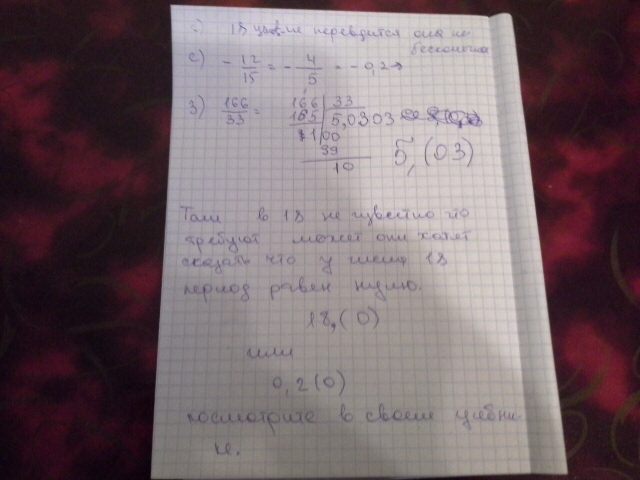 18 не переводится она не
бесконечна
с) - 12/15 = - 4/5 = - 0,2
3) 166/33 = 166 | 33
165 | 5,0303
100
99
10
5,(03)
Там в 18 не известно что
требуют может они хотят
сказать что у числа 18
период равен нулю.
18,(0)
или
0,2(0)
посмотрите в своем учебни-
ке.